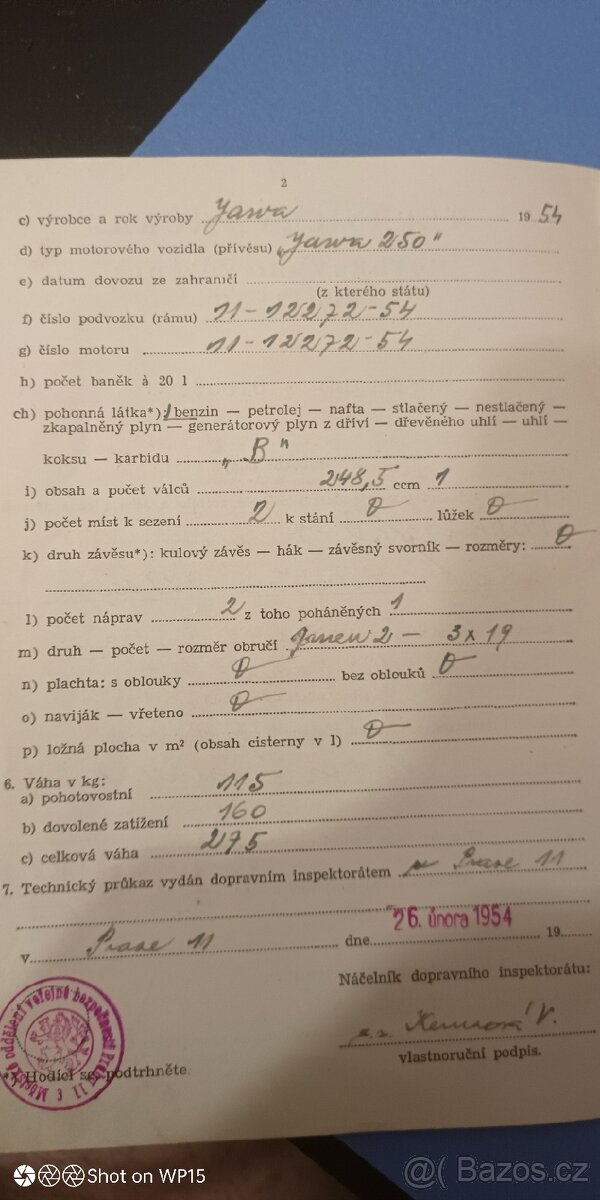 2
c) výrobce a rok výroby Jawa 19 54
d) typ motorového vozidla (přívěsu) „Jawa 250"
e) datum dovozu ze zahraničí
(z kterého státu)
f) číslo podvozku (rámu) 11-12272-54
g) číslo motoru 11-12272-54
h) počet baněk à 20 l
ch) pohonná látka*): benzin — petrolej — nafta — stlačený — nestlačený —
zkapalněný plyn — generátorový plyn z dříví — dřevěného uhlí — uhlí —
koksu — karbidu „B"
i) obsah a počet válců 248,5 ccm 1
j) počet míst k sezení 2 k stání 0 lůžek 0
k) druh závěsu*): kulový závěs — hák — závěsný svorník — rozměry: 0
l) počet náprav 2 z toho poháněných 1
m) druh — počet — rozměr obručí 2 — 3x19
n) plachta: s oblouky 0 bez oblouků 0
o) naviják — vřeteno 0
p) ložná plocha v m² (obsah cisterny v l) 0
6. Váha v kg:
a) pohotovostní 115
b) dovolené zatížení 160
c) celková váha 275
7. Technický průkaz vydán dopravním inspektorátem v Praze 11
v Praze 11 dne 26. února 1954 19
Náčelník dopravního inspektorátu:
vlastnoruční podpis.
*) Hodící se podtrhněte.
Městské oddělení veřejné bezpečnosti Praha 11
Shot on WP15
@( Bazos.cz